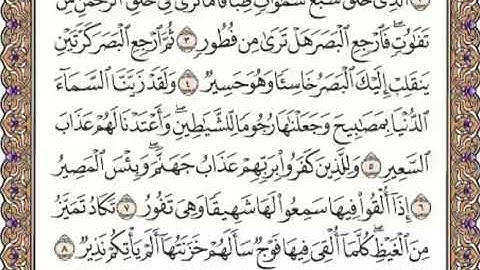 الَّذِى خَلَقَ سَبْعَ سَمَٰوَٰتٍ طِبَاقًا مَّا تَرَىٰ فِى خَلْقِ الرَّحْمَٰنِ مِن
تَفَٰوُتٍ ۖ فَارْجِعِ الْبَصَرَ هَلْ تَرَىٰ مِن فُطُورٍ ٣ ثُمَّ ارْجِعِ الْبَصَرَ كَرَّتَيْنِ
يَنقَلِبْ إِلَيْكَ الْبَصَرُ خَاسِئًا وَهُوَ حَسِيرٌ ٤ وَلَقَدْ زَيَّنَّا السَّمَآءَ
الدُّنْيَا بِمَصَٰبِيحَ وَجَعَلْنَٰهَا رُجُومًا لِّلشَّيَٰطِينِ ۖ وَأَعْتَدْنَا لَهُمْ عَذَابَ
السَّعِيرِ ٥ وَلِلَّذِينَ كَفَرُوا۟ بِرَبِّهِمْ عَذَابُ جَهَنَّمَ ۖ وَبِئْسَ الْمَصِيرُ
٦ إِذَآ أُلْقُوا۟ فِيهَا سَمِعُوا۟ لَهَا شَهِيقًا وَهِىَ تَفُورُ ٧ تَكَادُ تَمَيَّزُ
مِنَ الْغَيْظِ ۖ كُلَّمَآ أُلْقِىَ فِيهَا فَوْجٌ سَأَلَهُمْ خَزَنَتُهَآ أَلَمْ يَأْتِكُمْ نَذِيرٌ ٨